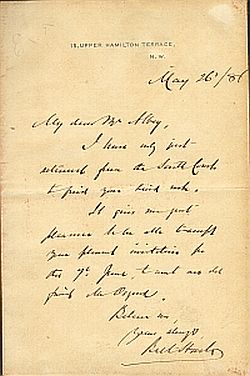 15, UPPER HAMILTON TERRACE,
N.W.
May 26 /86
My dear Mr Abbey,
I have only just
returned from the South Coast
to find your kind note.
It gives me great
pleasure to be able to accept
your pleasant invitation for
the 9th June to meet our old
friend Mr Osgood.
Believe me,
Yours always,
Bret Harte